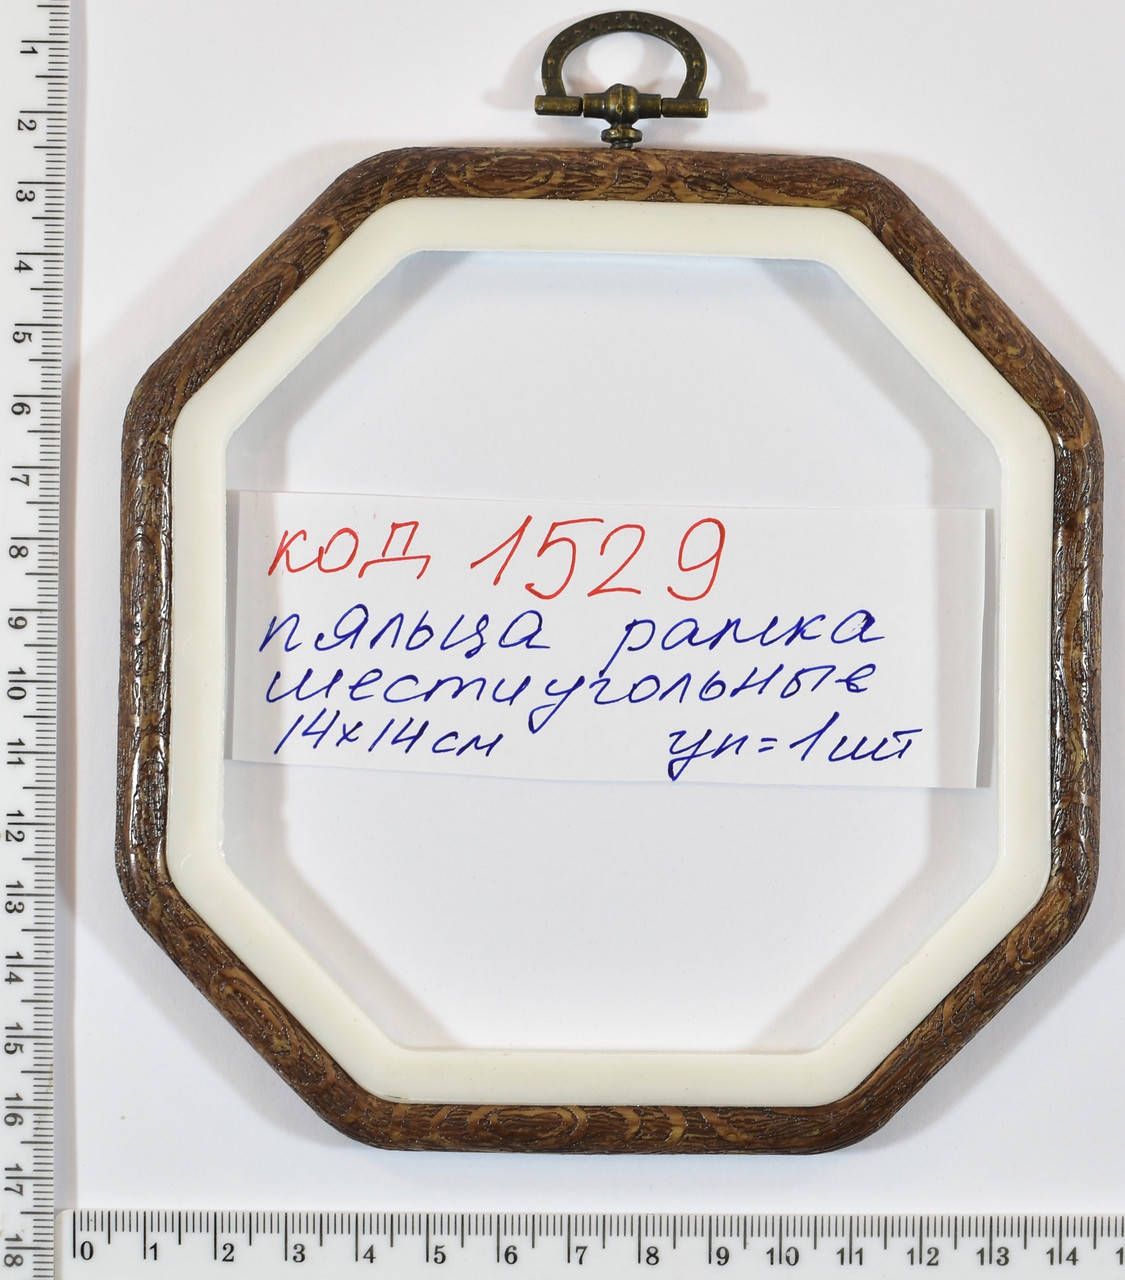 код 1529
пяльца рамка
шестиугольные
14х14см уп=1шт
1
2
3
4
5
6
7
8
9
10
11
12
13
14
15
16
17
18
0 1 2 3 4 5 6 7 8 9 10 11 12 13 14 1